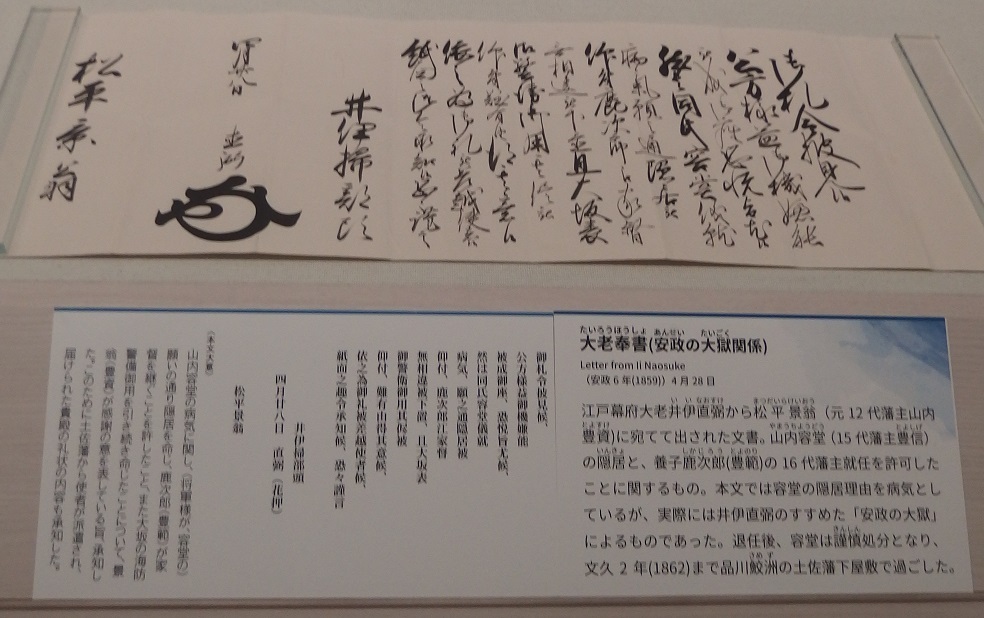 御札令披見候、
公方様益御機嫌能
被成御座、恐悦旨尤候、
然は同氏容堂儀就
病気、願之通隠居被
仰付、鹿次郎江家督
無相違被下置、且大坂表
御警衛御用是又
仰付、難有旨得其意候、
依之為御礼被差越使者候、
紙面之趣令承知候、恐々謹言
井伊掃部頭
四月廿八日 直弼（花押）
松平景翁
大老奉書(安政の大獄関係)
たいろうほうしょ あんせい たいごく
Letter from Ii Naosuke
（安政6年(1859)）4月28日
江戸幕府大老井伊直弼から松平景翁（元12代藩主山内
豊資)に宛てて出された文書。山内容堂（15代藩主豊信）
の隠居と、養子鹿次郎(豊範)の16代藩主就任を許可した
ことに関するもの。本文では容堂の隠居理由を病気とし
ているが、実際には井伊直弼のすすめた「安政の大獄」
によるものであった。退任後、容堂は謹慎処分となり、
文久2年(1862)まで品川鮫洲の土佐藩下屋敷で過ごした。
御札令披見候、
公方様益御機嫌能
被成御座、恐悦旨尤候、
然は同氏容堂儀就
病気、願之通隠居被
仰付、鹿次郎江家督
無相違被下置、且大坂表
御警衛御用共如元被
仰付、難有旨得其意候、
依之為御礼被差越使者候、
紙面之趣令承知候、恐々謹言
井伊掃部頭
四月廿八日 直弼（花押）
松平景翁
（本文大意）
山内容堂の病気に関し、（将軍様が、容堂の）
願いの通り隠居を命じ、鹿次郎（豊範）が家
督を継ぐことを許したこと、また大坂の海防
警備御用を引き続き命じたことについて、景
翁（豊資）が感謝の意を表している旨、承知し
た。このために土佐藩から使者が派遣され、
届けられた貴殿の礼状の内容も承知した。